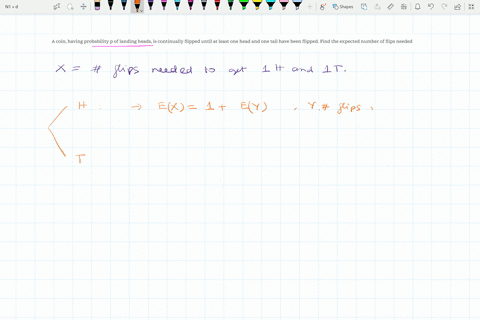 N1 + d
Shapes
A coin, having probability p of landing heads, is continually flipped until at least one head and one tail have been flipped. Find the expected number of flips needed
X = # flips needed to get 1 H and 1 T.
H. → E(X) = 1 + E(Y) , Y: # flips
T